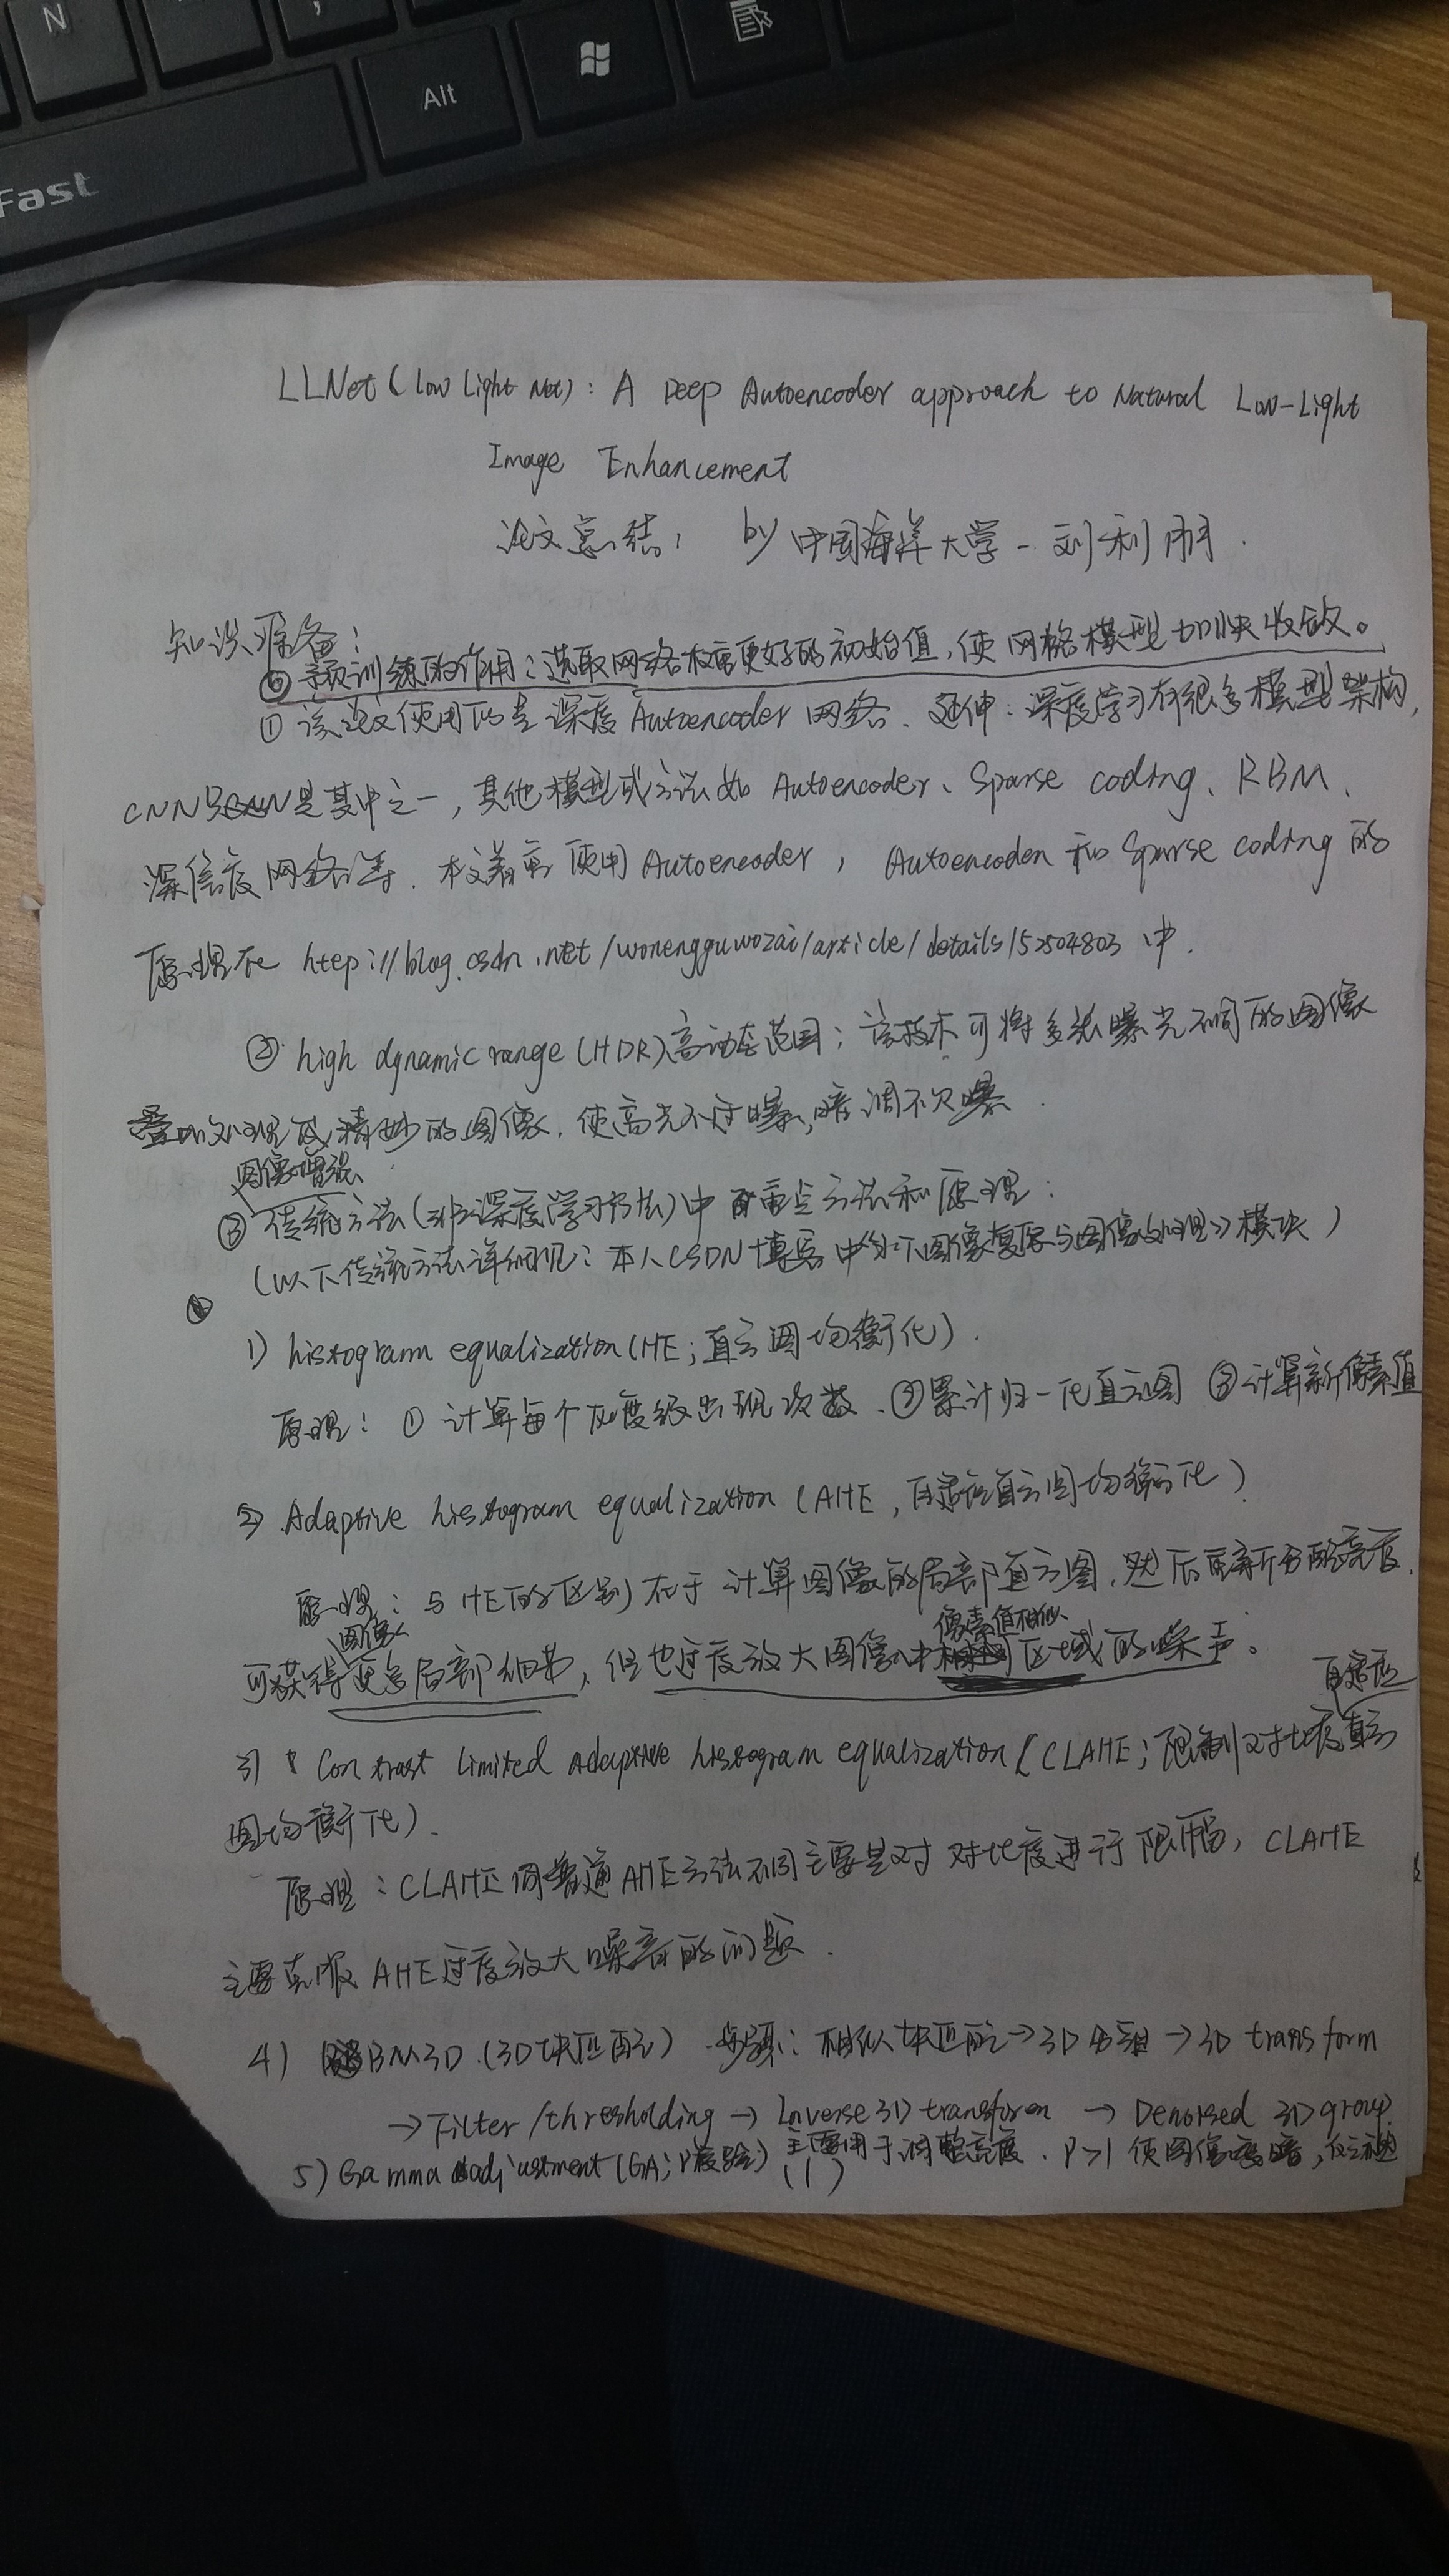 N
Alt
Fast
LLNet (Low Light Net): A Deep Autoencoder approach to Natural Low-Light
Image Enhancement
论文总结, by 中国海洋大学-刘利刚.
知识准备:
⓪ 预训练的作用:选取网络权重更好的初始值,使网格模型加快收敛。
① 该论文使用的是深度Autoencoder网络、延伸:深度学习有很多模型架构,
CNN是其中之一,其他模型或方法如Autoencoder、Sparse coding、RBM、
深信度网络等. 本文着重使用Autoencoder, Autoencoder和Sparse coding的
原理在 http://blog.csdn.net/wonengguwozai/article/details/52504803 中.
② high dynamic range (HDR)高动态范围;该技术可将多张曝光不同的图像
叠加处理成精妙的图像,使高光不过曝,暗调不欠曝.
图像增强
③ 传统方法(非深度学习方法)中重点方法和原理:
(以下传统方法详细见:本人CSDN博客中《图像复原与图像处理》模块)
1) histogram equalization (HE;直方图均衡化).
原理: ① 计算每个灰度级出现次数、②累计归一化直方图 ③计算新像素值
2) Adaptive histogram equalization (AHE, 自适应直方图均衡化)
原理:与HE的区别在于计算图像的局部直方图,然后重新分配亮度,
图像 像素值相似
可获得更多局部细节,但也过度放大图像中区域的噪声。
自适应
3) Contrast limited Adaptive histogram equalization (CLAHE;限制对比度直方
图均衡化).
原理:CLAHE同普通AHE方法不同主要是对对比度进行限幅, CLAHE
主要克服AHE过度放大噪音的问题.
4) BM3D (3D块匹配) 步骤:相似块匹配→3D分组→3D transform
→Filter/thresholding → Inverse 3D transform → Denoised 3D group.
5) Gamma adjustment (GA; 主要用于调整亮度. γ>1 使图像变暗,
(1)